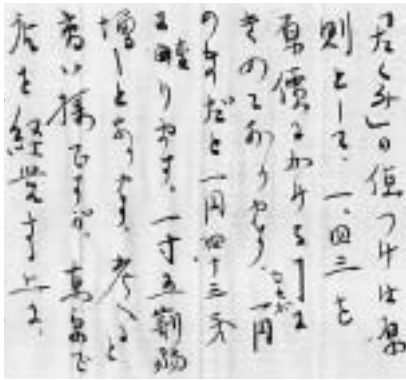 「たくみ」の値つけは原
則として、一、四三を
原價にかける事に
きめてあります。一円
のものだと一円四十三銭
ります。一寸五割弱
増しとあります。考へると
高い様ですが、東京で
店を経営する上に、